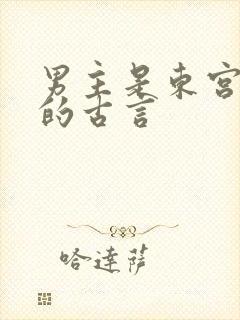 男主是东宫
的古言
哈达萨